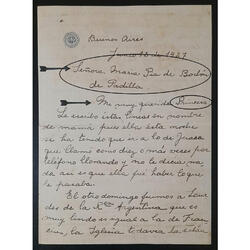 Buenos Aires
Junio 28 de 1937
Señora María Pía de Borbón
de Padilla
Mi muy querida Princesa
Le escribo estas líneas en nombre
de mamá pues ella esta noche
se ha tenido que ir a lo de
que llamó como diez o más veces por
teléfono llorando y no le decía na
da así es que ella fué haber lo que
le pasaba.
El otro domingo fuimos a Lour
des de la Rca Argentina que es
muy lindo es igual a la de Fran
cia, la Iglesia todavía la están